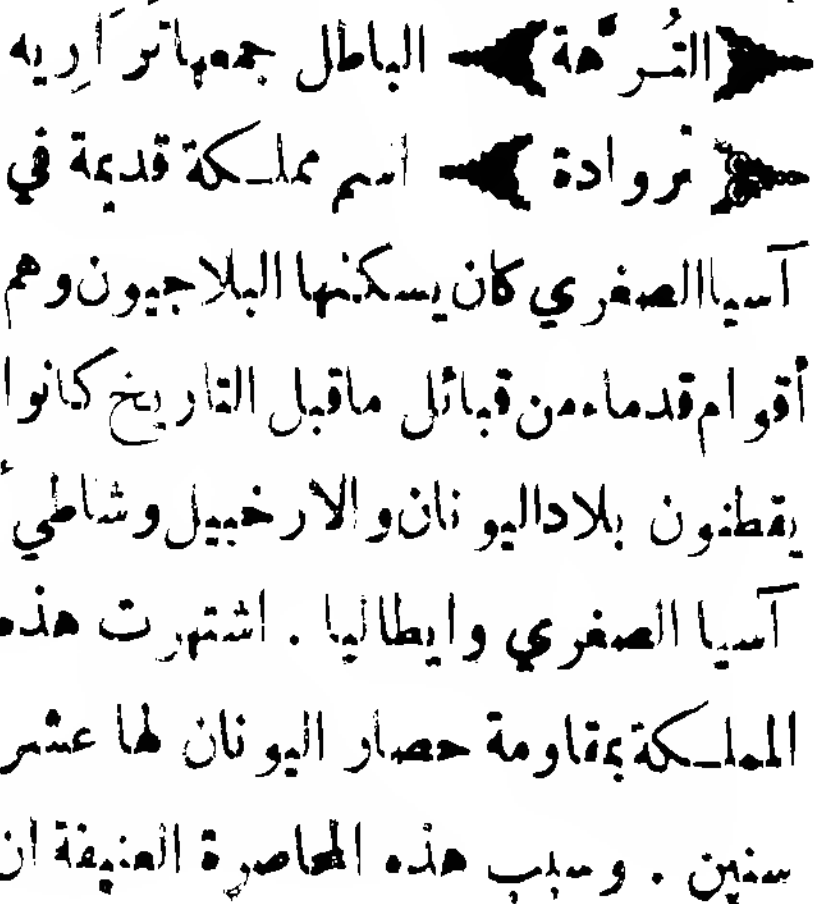 ﴿التُرَّهة﴾ الباطل جمعها تَرَارِيه
﴿ تروادة ﴾ اسم مملكة قديمة في
آسيا الصغري كان يسكنها البلاجيون وهم
أقوام قدماء من قبائل ماقبل التاريخ كانوا
يقطنون بلاد اليونان والارخبيل وشاطيء
آسيا الصغري وايطاليا . اشتهرت هذه
المملكة بمقاومة حصار اليونان لها عشر
سنين . وسبب هذه المحاصرة العنيفة ان